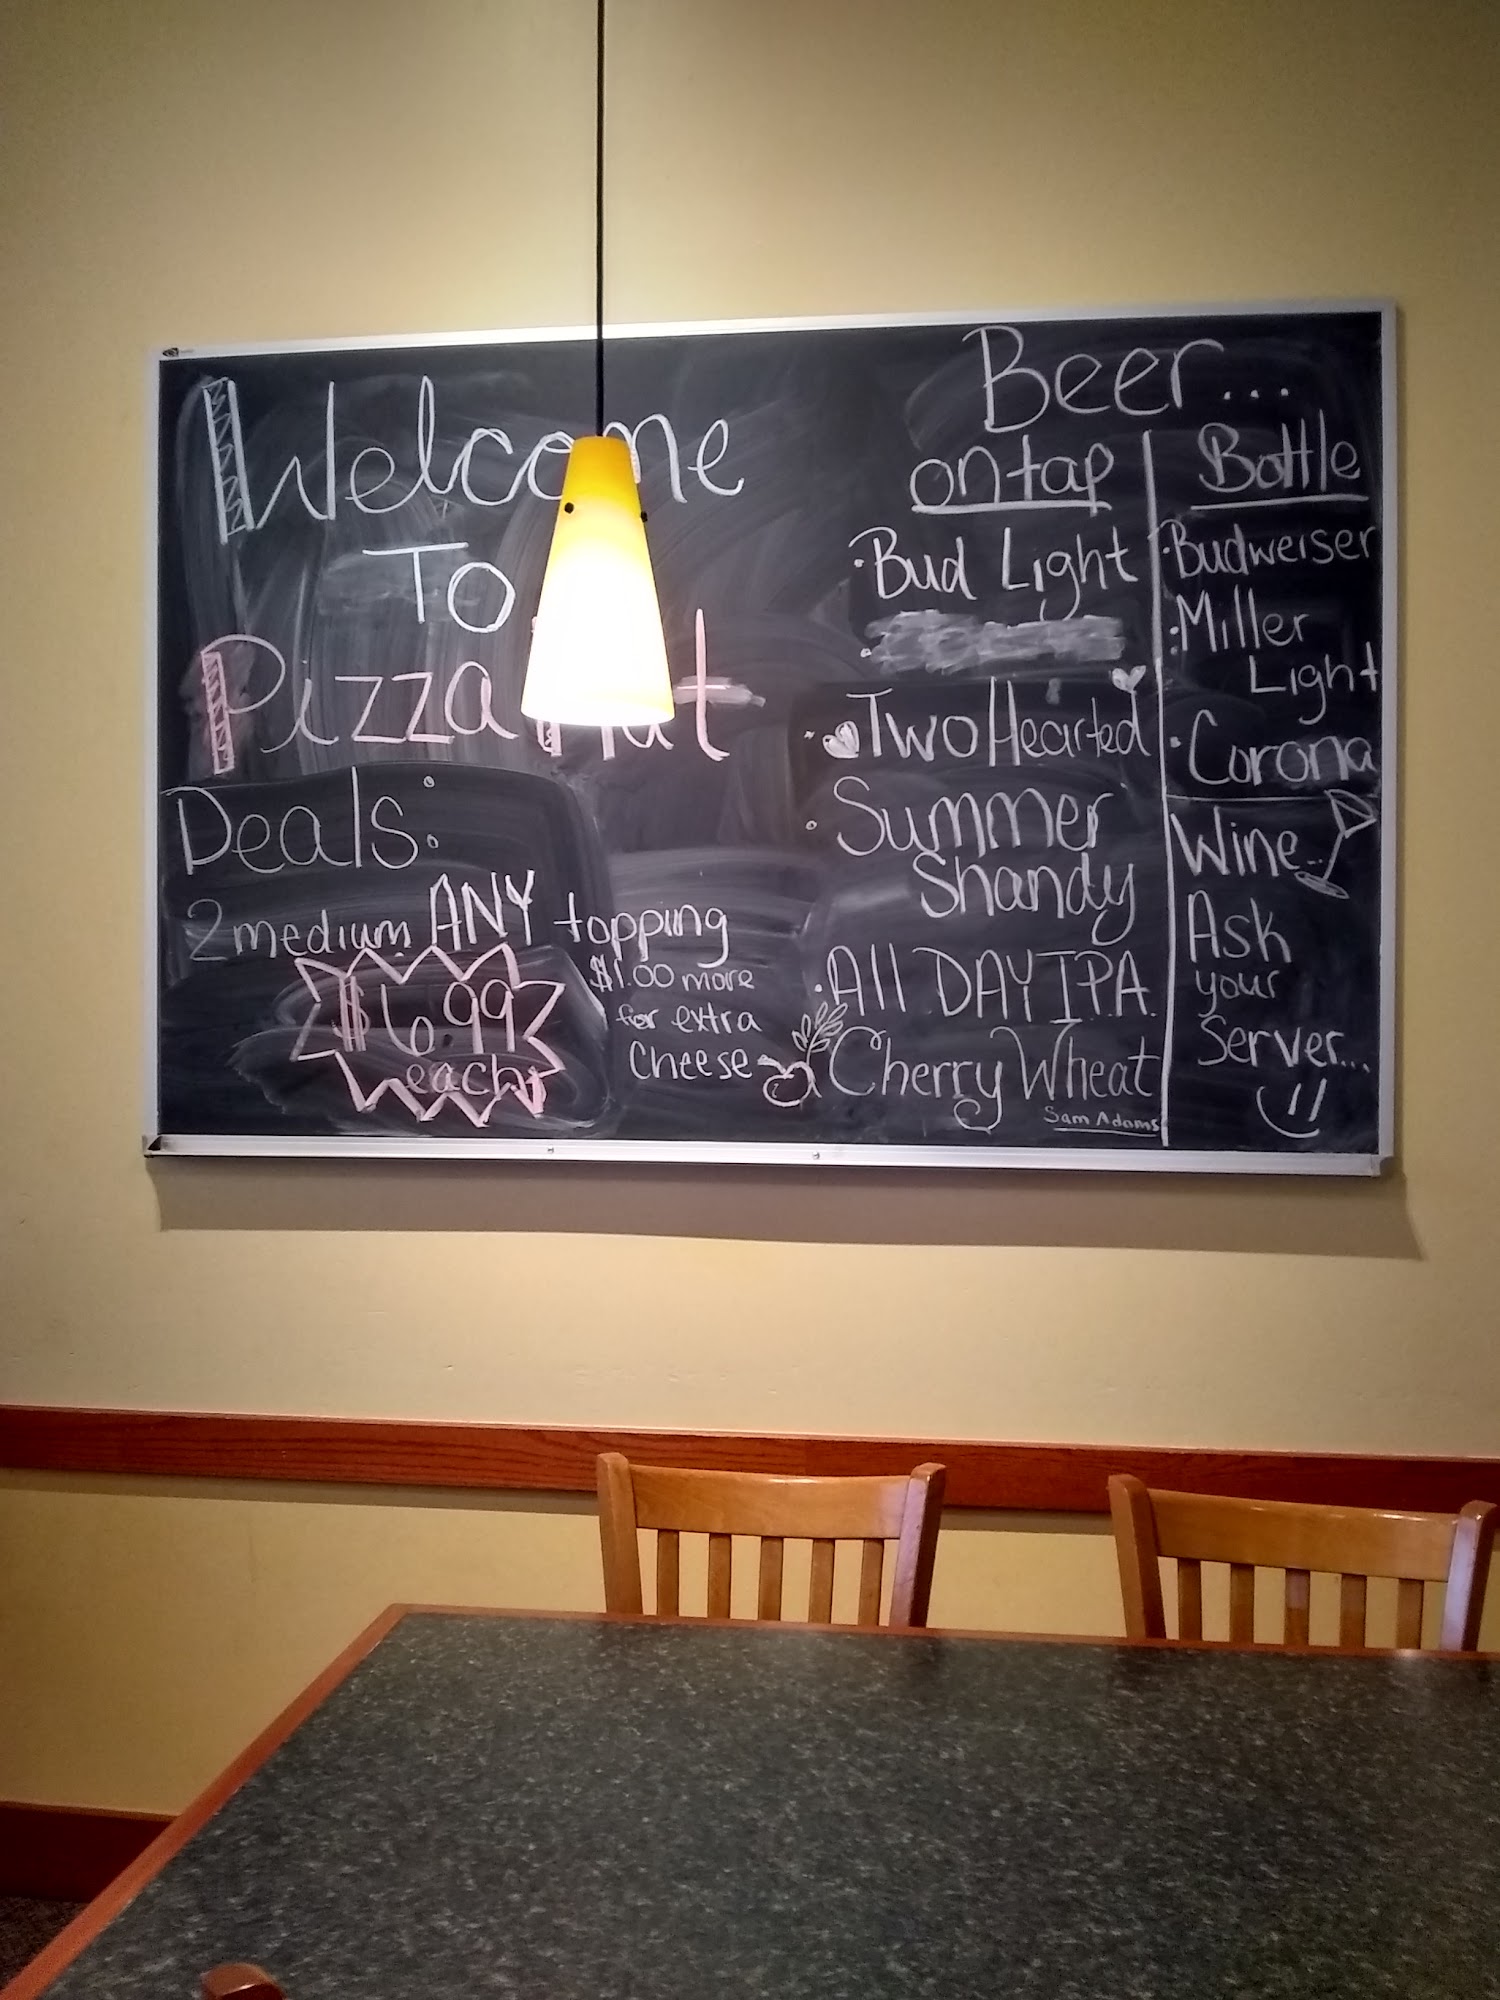 Welcome
To
Pizza Hut
Deals:
2 medium ANY topping
$6.99
each
$1.00 more
for extra
Cheese
Beer...
on tap
• Bud Light
• Two Hearted
• Summer
Shandy
• All DAY I.P.A.
Cherry Wheat
Sam Adams
Bottle
• Budweiser
• Miller
Light
• Corona
Wine...
Ask
your
Server...